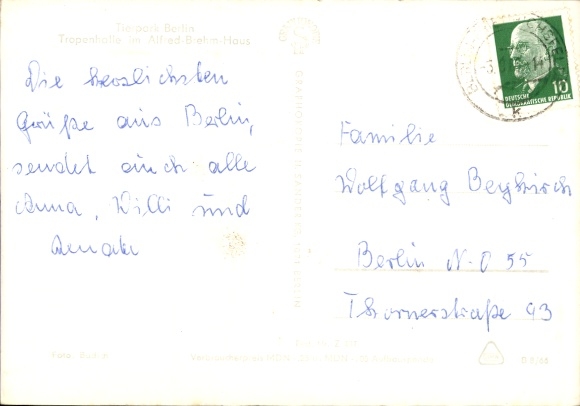 Tierpark Berlin
Tropenhalle im Alfred-Brehm-Haus
Die herzlichsten
Grüße aus Berlin,
sendet euch alle
Anna, Willi und
Renate
DEUTSCHE
DEMOKRATISCHE REPUBLIK
10
Familie
Wolfgang Bergkirch
Berlin N-O 55
Thornerstraße 93